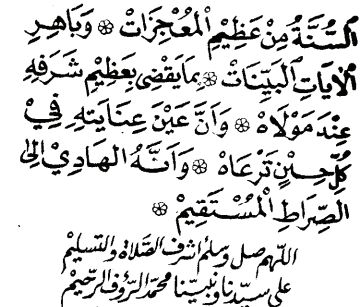 السُّنَّةُ مِنْ عَظِيْمِ الْمُعْجِزَاتْ ۞ وَبَاهِرِ
الْآيَاتِ الْبَيِّنَاتْ ۞ بِمَا يَقْضِى بِعَظِيْمِ شَرَفِهِ
عِنْدَ مَوْلَاهْ ۞ وَاَنَّ عَيْنَ عِنَايَتِهِ فِيْ
كُلِّ حِيْنٍ تَرْعَاهْ ۞ وَاَنَّهُ الْهَادِيْ اِلَى
الصِّرَاطِ الْمُسْتَقِيْمْ ۞
اللّهم صل وسلم اشرف الصّلاة والتسليم
على سيّدنا ونبيّنا محمّد الرّؤف الرّحيم